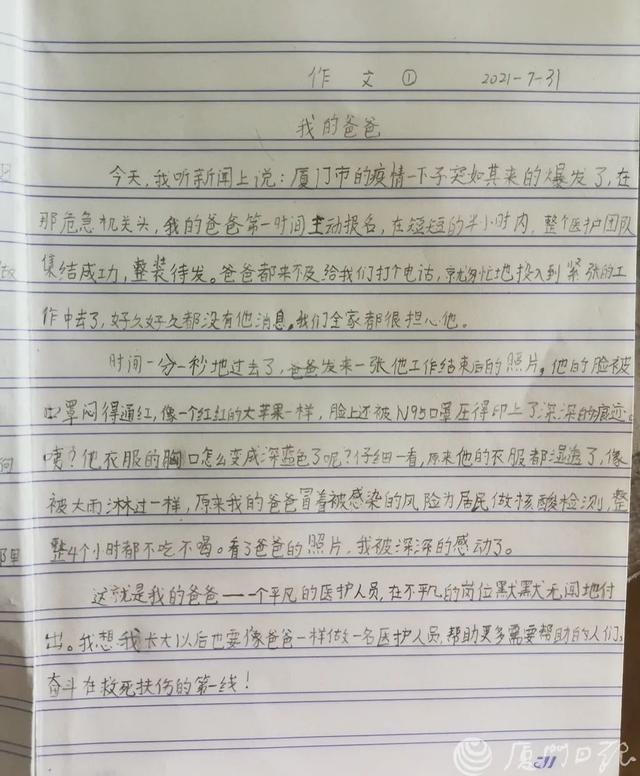 作 文 ① 2021-7-31
我的爸爸
今天,我听新闻上说:厦门市的疫情一下子突如其来的爆发了,在
那危急机关头,我的爸爸第一时间主动报名,在短短的半小时内,整个医护团队
集结成功,整装待发。爸爸都来不及给我们打个电话,就匆忙地投入到紧张的工
作中去了,好久好久都没有他消息,我们全家都很担心他。
时间一分一秒地过去了,爸爸发来一张他工作结束后的照片,他的脸被
口罩闷得通红,像一个红红的大苹果一样,脸上还被N95口罩压得印上了深深的痕迹。
咦?他衣服的胸口怎么变成深蓝色了呢?仔细一看,原来他的衣服都湿透了,像
被大雨淋过一样,原来我的爸爸冒着被感染的风险为居民做核酸检测,整
整4个小时都不吃不喝。看了爸爸的照片,我被深深的感动了。
这就是我的爸爸——一个平凡的医护人员,在不平凡的岗位默默无闻地付
出。我想我长大以后也要像爸爸一样做一名医护人员,帮助更多需要帮助的人们,
奋斗在救死扶伤的第一线!
厦门日报